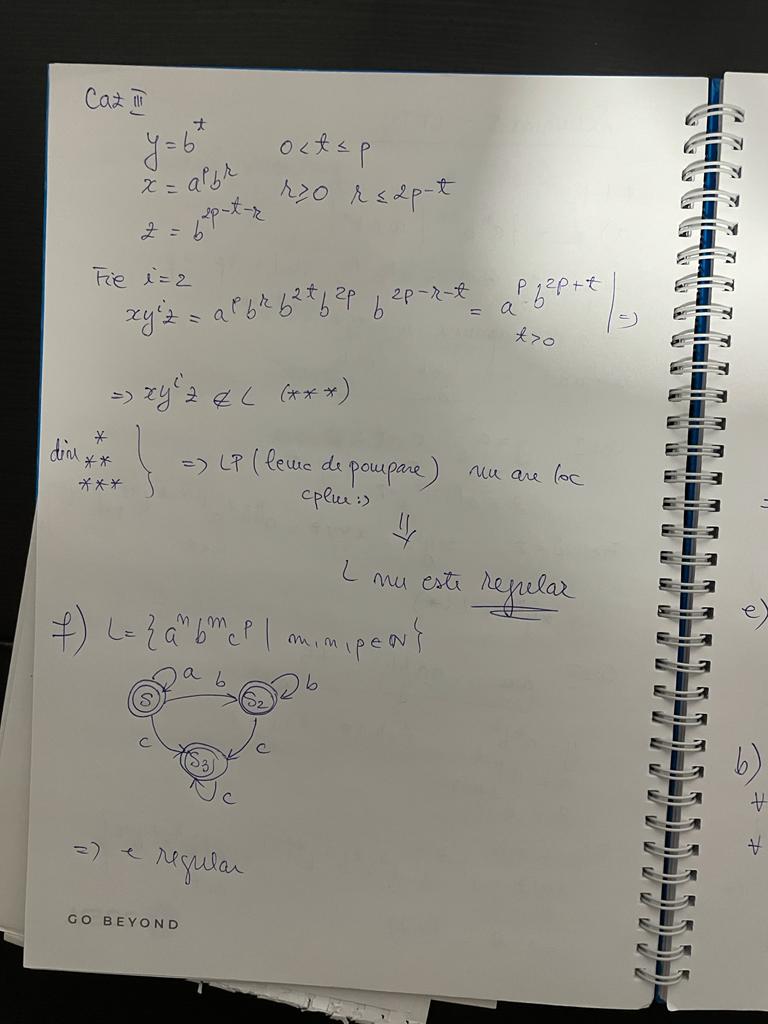 Caz III
y = b^t    0 < t ≤ p
x = a^p b^r    r ≥ 0  r ≤ 2p-t
z = b^{2p-t-r}
Fie i = 2
xy^i z = a^p b^r b^{2t} b^{2p} b^{2p-r-t} = a^p b^{2p+t} | =>
t > 0
=> xy^i z ∉ L (***)
din * ** *** } => LP (lema de pompare) nu are loc
⇓
L nu este regular
f) L = {a^n b^m c^p | m, n, p ∈ ℕ}
S a b S2 b
c S3 c
c
=> e regular
GO BEYOND
e)
b)
∀
∀